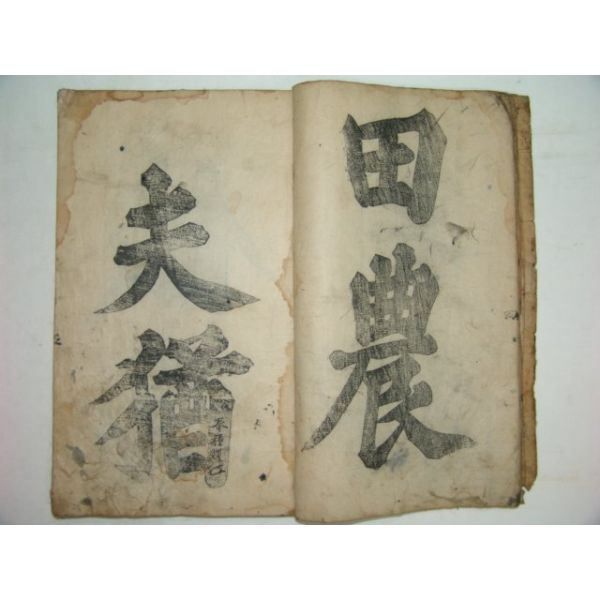 田農
夫猶